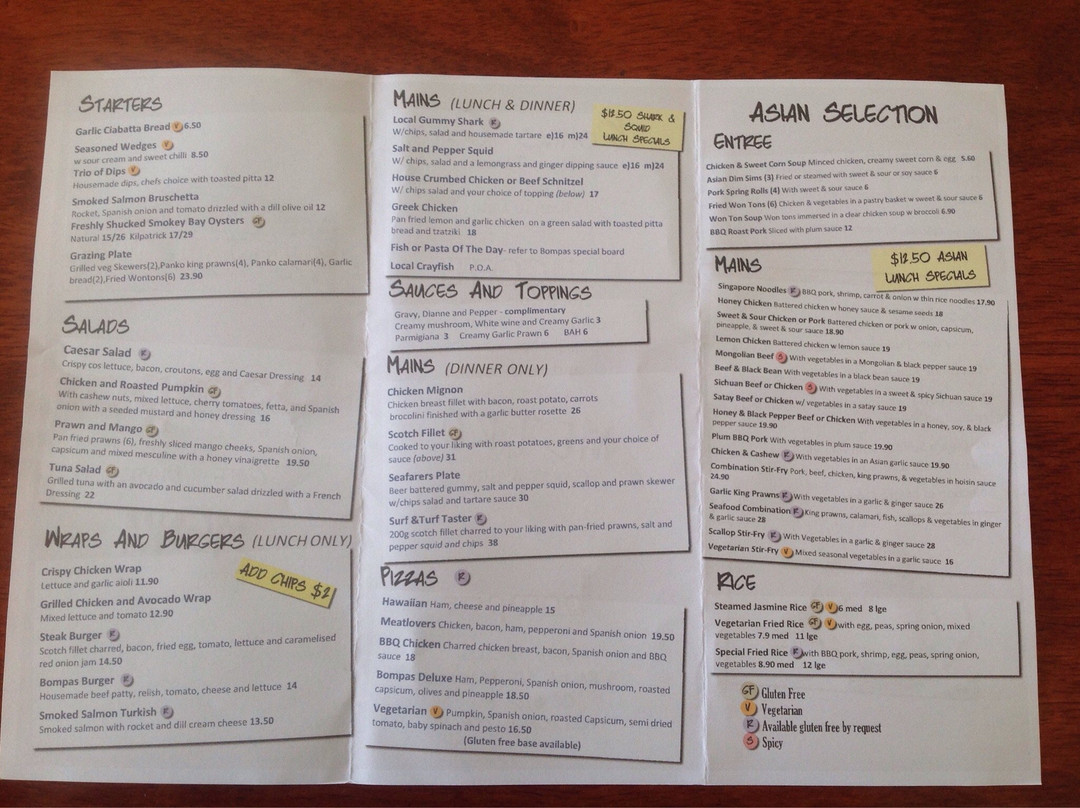 STARTERS
Garlic Ciabatta Bread V 6.50
Seasoned Wedges V
w sour cream and sweet chilli 8.50
Trio of Dips V
Housemade dips, chefs choice with toasted pitta 12
Smoked Salmon Bruschetta
Rocket, Spanish onion and tomato drizzled with a dill olive oil 12
Freshly Shucked Smokey Bay Oysters GF
Natural 15/26 Kilpatrick 17/29
Grazing Plate
Grilled veg Skewers(2),Panko king prawns(4), Panko calamari(4), Garlic
bread(2),Fried Wontons(6) 23.90
SALADS
Caesar Salad R
Crispy cos lettuce, bacon, croutons, egg and Caesar Dressing 14
Chicken and Roasted Pumpkin GF
With cashew nuts, mixed lettuce, cherry tomatoes, fetta, and Spanish
onion with a seeded mustard and honey dressing 16
Prawn and Mango GF
Pan fried prawns (6), freshly sliced mango cheeks, Spanish onion,
capsicum and mixed mesculine with a honey vinaigrette 19.50
Tuna Salad GF
Grilled tuna with an avocado and cucumber salad drizzled with a French
Dressing 22
WRAPS AND BURGERS (LUNCH ONLY)
ADD CHIPS $2
Crispy Chicken Wrap
Lettuce and garlic aioli 11.90
Grilled Chicken and Avocado Wrap
Mixed lettuce and tomato 12.90
Steak Burger R
Scotch fillet charred, bacon, fried egg, tomato, lettuce and caramelised
red onion jam 14.50
Bompas Burger R
Housemade beef patty, relish, tomato, cheese and lettuce 14
Smoked Salmon Turkish R
Smoked salmon with rocket and dill cream cheese 13.50
MAINS (LUNCH & DINNER)
$12.50 SHARK &
SQUID
LUNCH SPECIALS
Local Gummy Shark R
W/chips, salad and housemade tartare e)16 m)24
Salt and Pepper Squid
W/ chips, salad and a lemongrass and ginger dipping sauce e)16 m)24
House Crumbed Chicken or Beef Schnitzel
W/ chips salad and your choice of topping (below) 17
Greek Chicken
Pan fried lemon and garlic chicken on a green salad with toasted pitta
bread and tzatziki 18
Fish or Pasta Of The Day- refer to Bompas special board
Local Crayfish P.O.A.
SAUCES AND TOPPINGS
Gravy, Dianne and Pepper - complimentary
Creamy mushroom, White wine and Creamy Garlic 3
Parmigiana 3 Creamy Garlic Prawn 6 BAH 6
MAINS (DINNER ONLY)
Chicken Mignon
Chicken breast fillet with bacon, roast potato, carrots
brocolini finished with a garlic butter rosette 26
Scotch Fillet GF
Cooked to your liking with roast potatoes, greens and your choice of
sauce (above) 31
Seafarers Plate
Beer battered gummy, salt and pepper squid, scallop and prawn skewer
w/chips salad and tartare sauce 30
Surf &Turf Taster R
200g scotch fillet charred to your liking with pan-fried prawns, salt and
pepper squid and chips 38
PIZZAS R
Hawaiian Ham, cheese and pineapple 15
Meatlovers Chicken, bacon, ham, pepperoni and Spanish onion 19.50
BBQ Chicken Charred chicken breast, bacon, Spanish onion and BBQ
sauce 18
Bompas Deluxe Ham, Pepperoni, Spanish onion, mushroom, roasted
capsicum, olives and pineapple 18.50
Vegetarian V Pumpkin, Spanish onion, roasted Capsicum, semi dried
tomato, baby spinach and pesto 16.50
(Gluten free base available)
ASIAN SELECTION
ENTREE
Chicken & Sweet Corn Soup Minced chicken, creamy sweet corn & egg 5.60
Asian Dim Sims (3) Fried or steamed with sweet & sour or soy sauce 6
Pork Spring Rolls (4) With sweet & sour sauce 6
Fried Won Tons (6) Chicken & vegetables in a pastry basket w sweet & sour sauce 6
Won Ton Soup Won tons immersed in a clear chicken soup w broccoli 6.90
BBQ Roast Pork Sliced with plum sauce 12
MAINS
$12.50 ASIAN
LUNCH SPECIALS
Singapore Noodles R BBQ pork, shrimp, carrot & onion w thin rice noodles 17.90
Honey Chicken Battered chicken w honey sauce & sesame seeds 18
Sweet & Sour Chicken or Pork Battered chicken or pork w onion, capsicum,
pineapple, & sweet & sour sauce 18.90
Lemon Chicken Battered chicken w lemon sauce 19
Mongolian Beef S With vegetables in a Mongolian & black pepper sauce 19
Beef & Black Bean With vegetables in a black bean sauce 19
Sichuan Beef or Chicken S With vegetables in a sweet & spicy Sichuan sauce 19
Satay Beef or Chicken w/ vegetables in a satay sauce 19
Honey & Black Pepper Beef or Chicken With vegetables in a honey, soy, & black
pepper sauce 19.90
Plum BBQ Pork With vegetables in plum sauce 19.90
Chicken & Cashew R With vegetables in an Asian garlic sauce 19.90
Combination Stir-Fry Pork, beef, chicken, king prawns, & vegetables in hoisin sauce
24.90
Garlic King Prawns R With vegetables in a garlic & ginger sauce 26
Seafood Combination R King prawns, calamari, fish, scallops & vegetables in ginger
& garlic sauce 28
Scallop Stir-Fry R With Vegetables in a garlic & ginger sauce 28
Vegetarian Stir-Fry V Mixed seasonal vegetables in a garlic sauce 16
RICE
Steamed Jasmine Rice GF V 6 med 8 lge
Vegetarian Fried Rice GF V with egg, peas, spring onion, mixed
vegetables 7.9 med 11 lge
Special Fried Rice R with BBQ pork, shrimp, egg, peas, spring onion,
vegetables 8.90 med 12 lge
GF Gluten Free
V Vegetarian
R Available gluten free by request
S Spicy